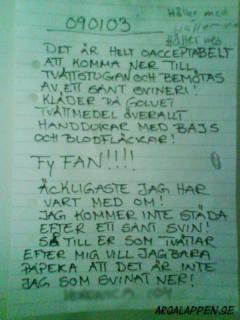 090103
Håller med
Håller med
DET ÄR HELT OACCEPTABELT
ATT KOMMA NER TILL
TVÄTTSTUGAN OCH BEMÖTAS
AV ETT SÅNT SVINERI!
KLÄDER PÅ GOLVET
TVÄTTMEDEL ÖVERALLT
HANDDUKAR MED BAJS
OCH BLODFLÄCKAR!
Fy FAN!!!!
ÄCKLIGASTE JAG HAR
VART MED OM!
JAG KOMMER INTE STÄDA
EFTER ETT SÅNT SVIN!
SÅ TILL ER SOM TVÄTTAR
EFTER MIG VILL JAG BARA
PÅPEKA ATT DET ÄR INTE
JAG SOM SVINAT NER!
ARGALAPPEN.SE